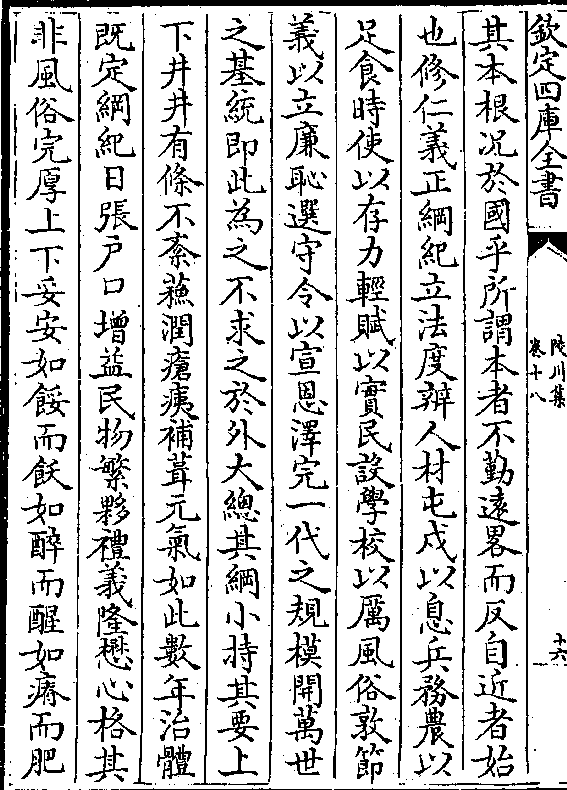 欽定四庫全書
陵川集
卷十八
十六
其本根况於國乎所謂本者不勤逺畧而反自近者始
也修仁義正綱紀立法度辨人材屯戍以息兵務農以
足食時使以存力輕賦以實民設學校以厲風俗敦節
義以立廉恥選守令以宣恩澤完一代之規模開萬世
之基統即此為之不求之於外大總其綱小持其要上
下井井有條不紊蘓潤瘡痍補葺元氣如此數年治體
既定綱紀日張戸口増益民物繁夥禮義隆懋心格其
非風俗完厚上下妥安如餒而飫如醉而醒如瘠而肥